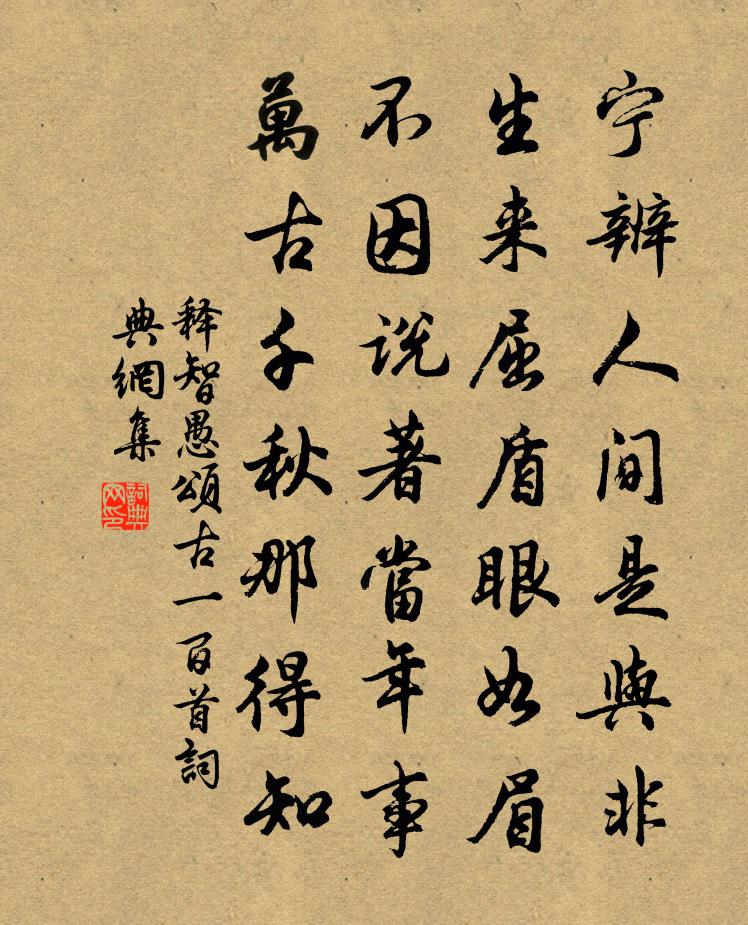 宁辨人间是與非
生来屈盾眼如眉
不因说著當年事
萬古千秋那得知
释智愚頌古一百首詞
典網集
詞典
网印